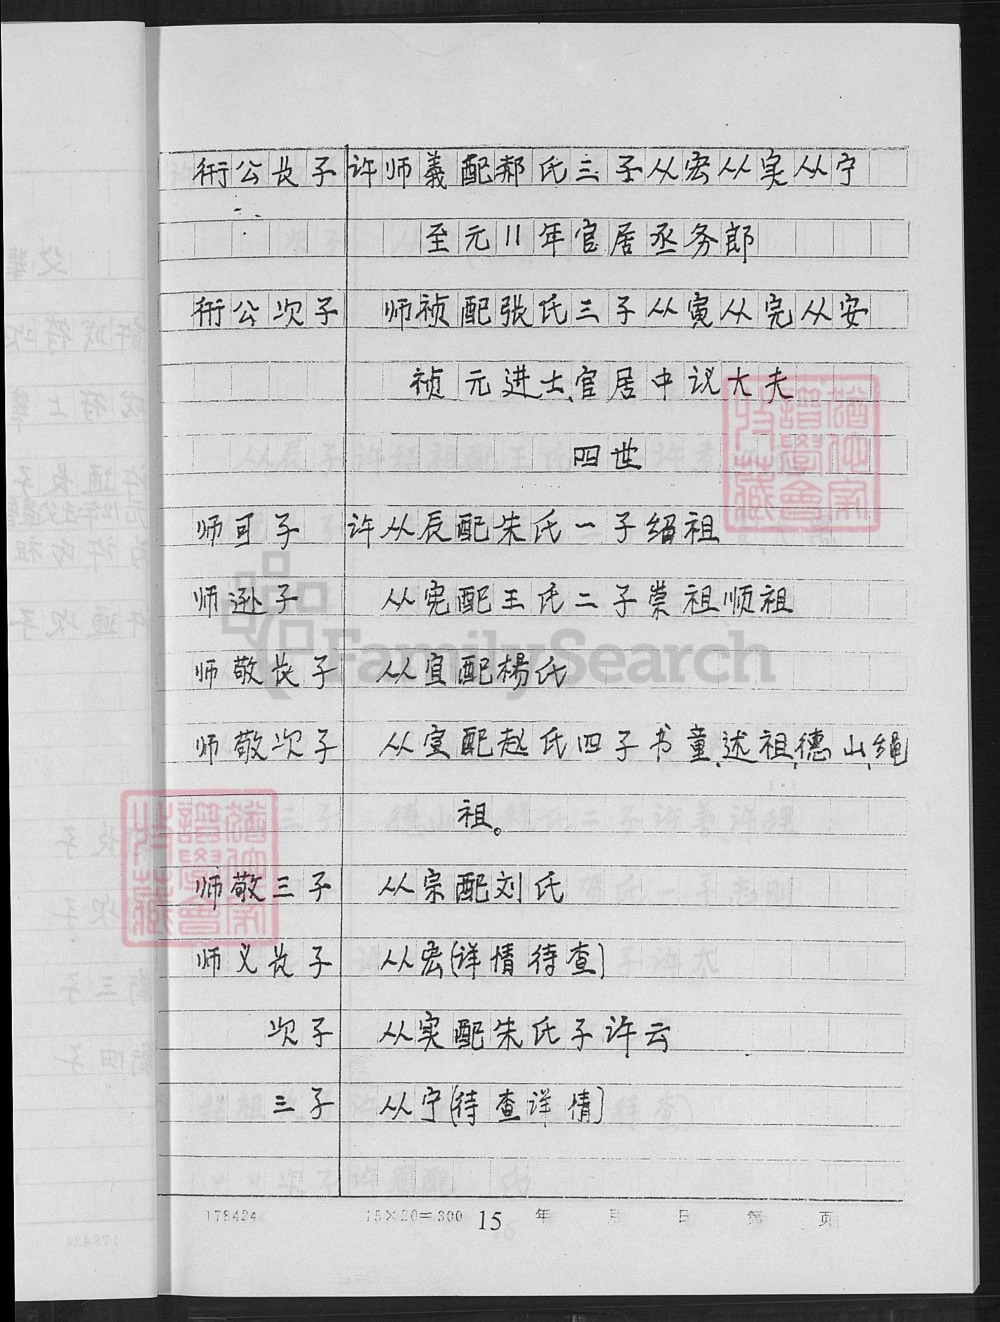 衍公长子 许师義配郝氏三子从宏从実从宁
至元11年官居丞务郎
衍公次子 师祯配张氏三子从寅从完从安
祯元进士、官居中议大夫
四世
师可子 许从辰配朱氏一子绍祖
师逊子 从宪配王氏二子崇祖顺祖
师敬长子 从宜配楊氏
师敬次子 从室配赵氏四子书童、述祖、德山、绳
祖。
师敬三子 从宗配刘氏
师义长子 从宏(详情待查)
次子 从实配朱氏子许云
三子 从宁(待查详情)
178424 15×20=300 15 年 月 日 第 页
FamilySearch